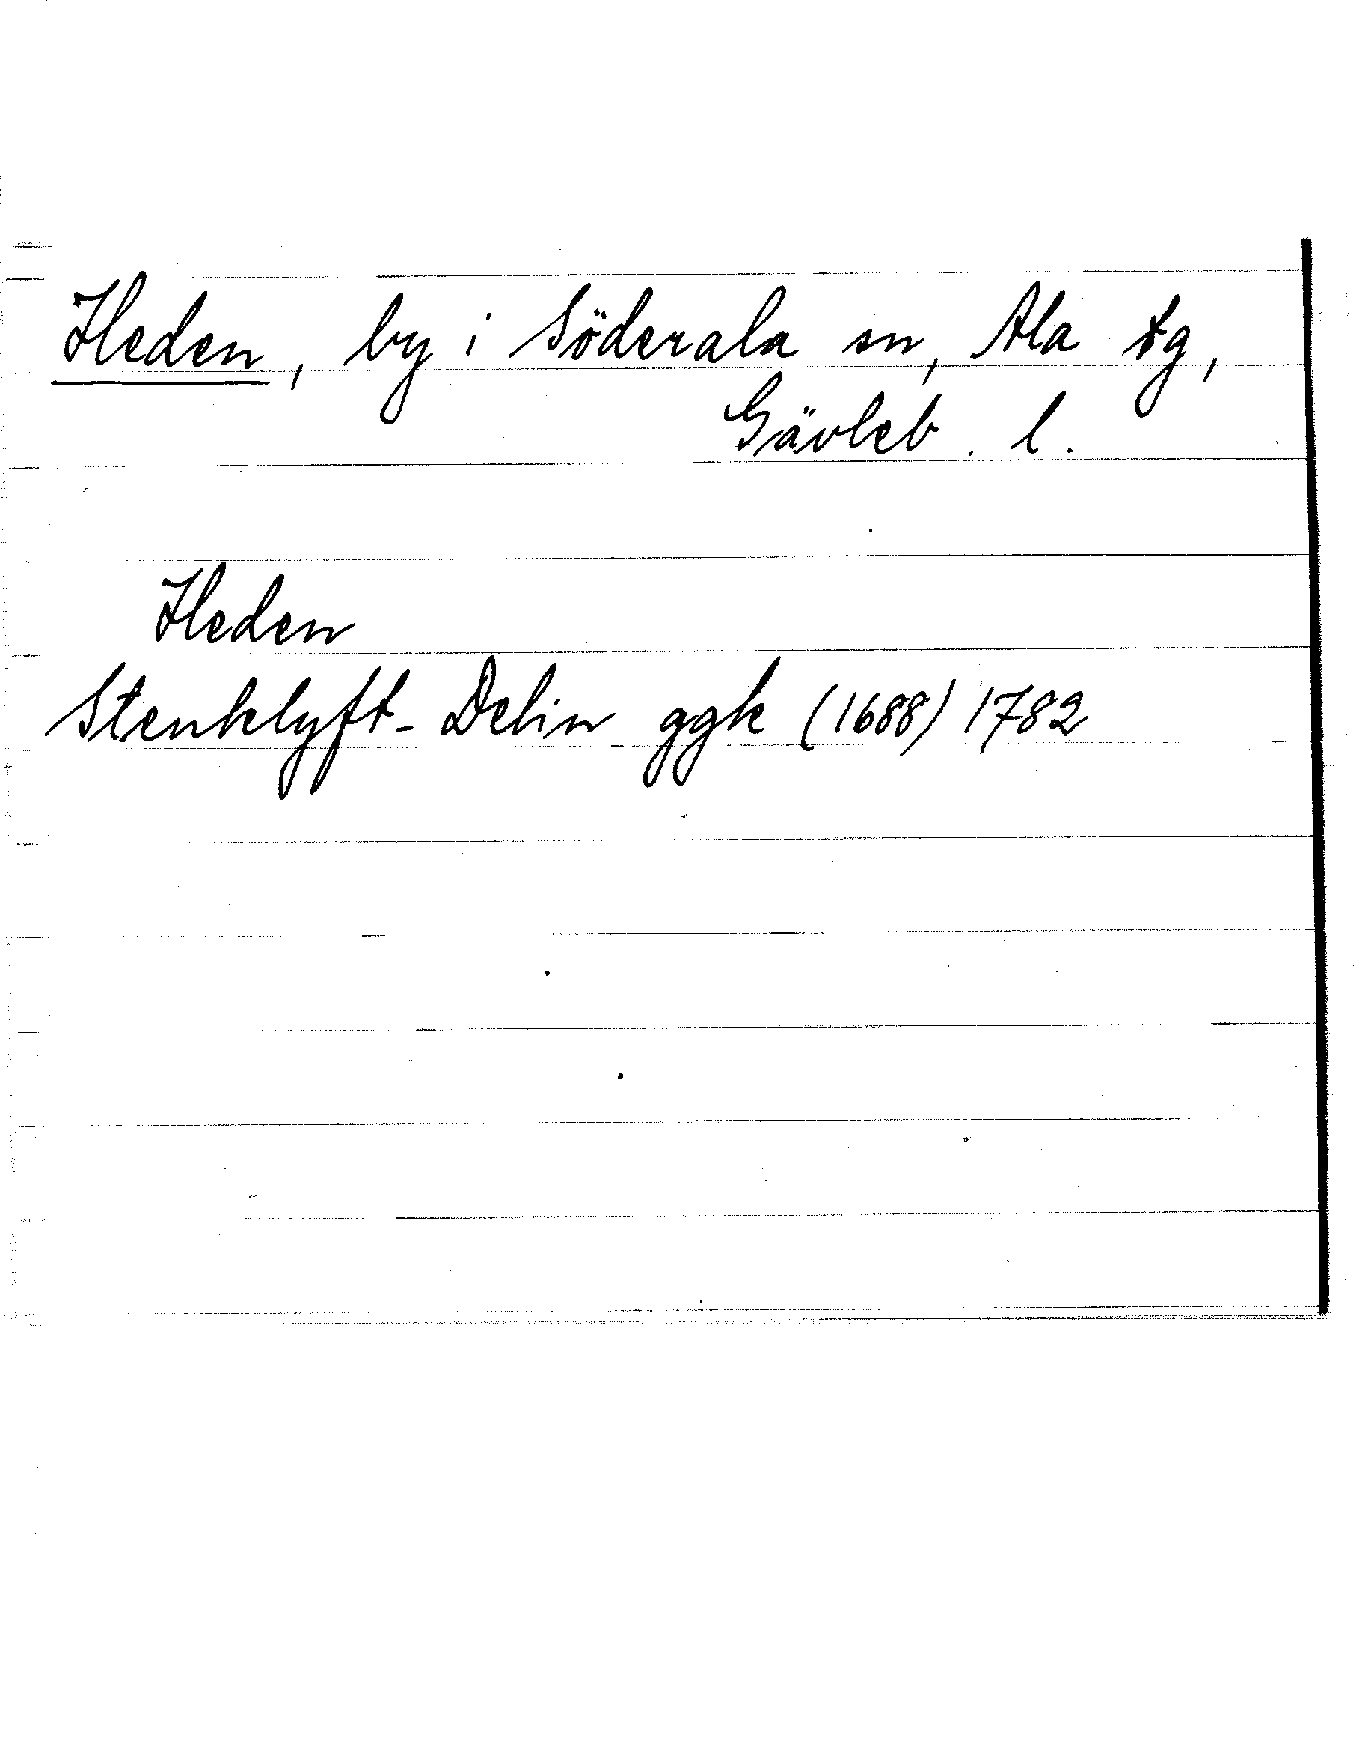 Heden, by i Söderala sn, Ala tg,
Gävleb. l.
Heden
Stenklyft- Delin ggk (1688) 1782